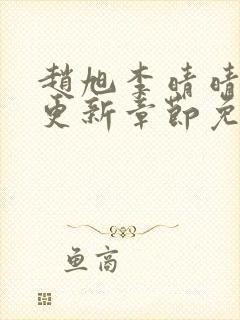 趙旭李晴晴
更新章節免
鱼高